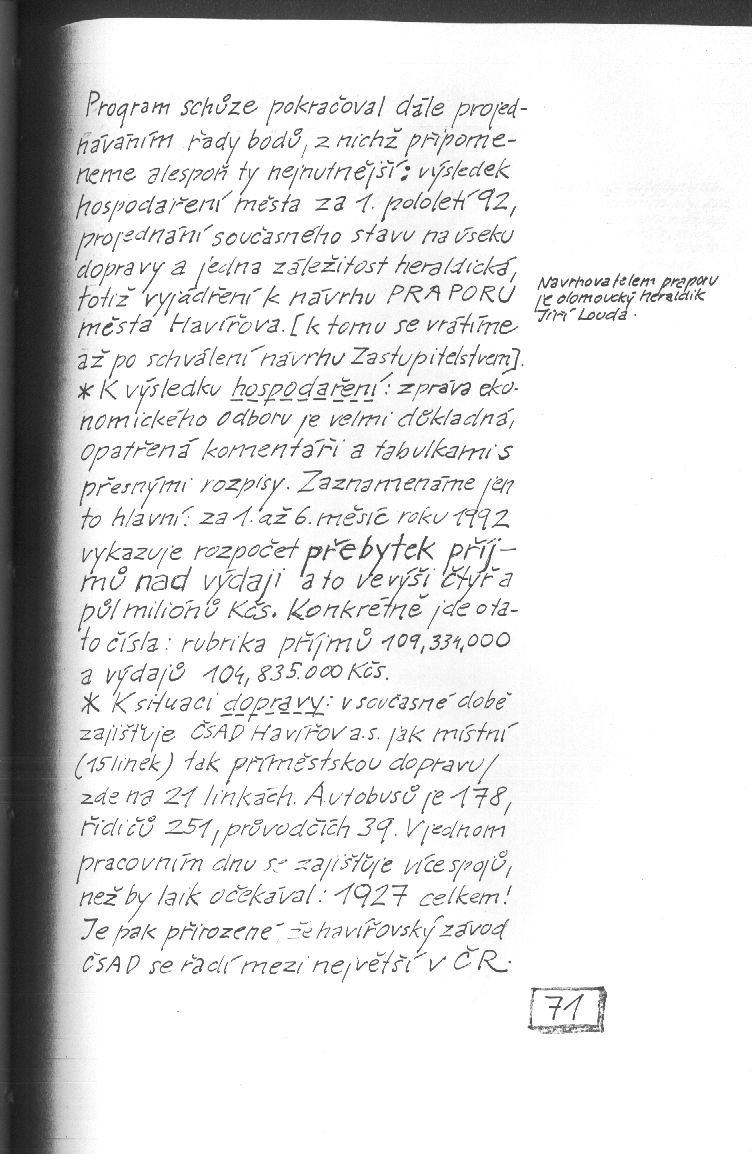 Program schůze pokračoval dále projed-
náváním řady bodů, z nichž připome-
neme alespoň ty nejnutnější: výsledek
hospodaření města za 1. pololetí 92,
projednání současného stavu na úseku
dopravy a jedna záležitost heraldická,
totiž vyjádření k návrhu PRAPORU
města Havířova. [k tomu se vrátíme
až po schválení návrhu Zastupitelstvem].
* K výsledku hospodaření: zpráva eko-
nomického odboru je velmi důkladná,
opatřená komentáři a tabulkami s
přesnými rozpisy. Zaznamenáme jen
to hlavní: za 1. až 6. měsíc roku 1992
vykazuje rozpočet přebytek příj-
mů nad výdaji a to ve výši čtyř a
půl miliónů Kčs. Konkrétně jde o ta-
to čísla: rubrika příjmů 109,334,000
a výdajů 104,835.000 Kčs.
* K situaci dopravy: v současné době
zajišťuje ČSAD Havířov a.s. jak místní
(15 linek) tak příměstskou dopravu/
zde na 21 linkách. Autobusů je 178,
řidičů 251, průvodčích 39. V jednom
pracovním dnu se zajišťuje více spojů,
než by laik očekával: 1927 celkem!
Je pak přirozené, že havířovský závod
ČSAD se řadí mezi největší v ČR.
Navrhovatelem praporu
je olomoucký heraldik
Jiří Louda.
71